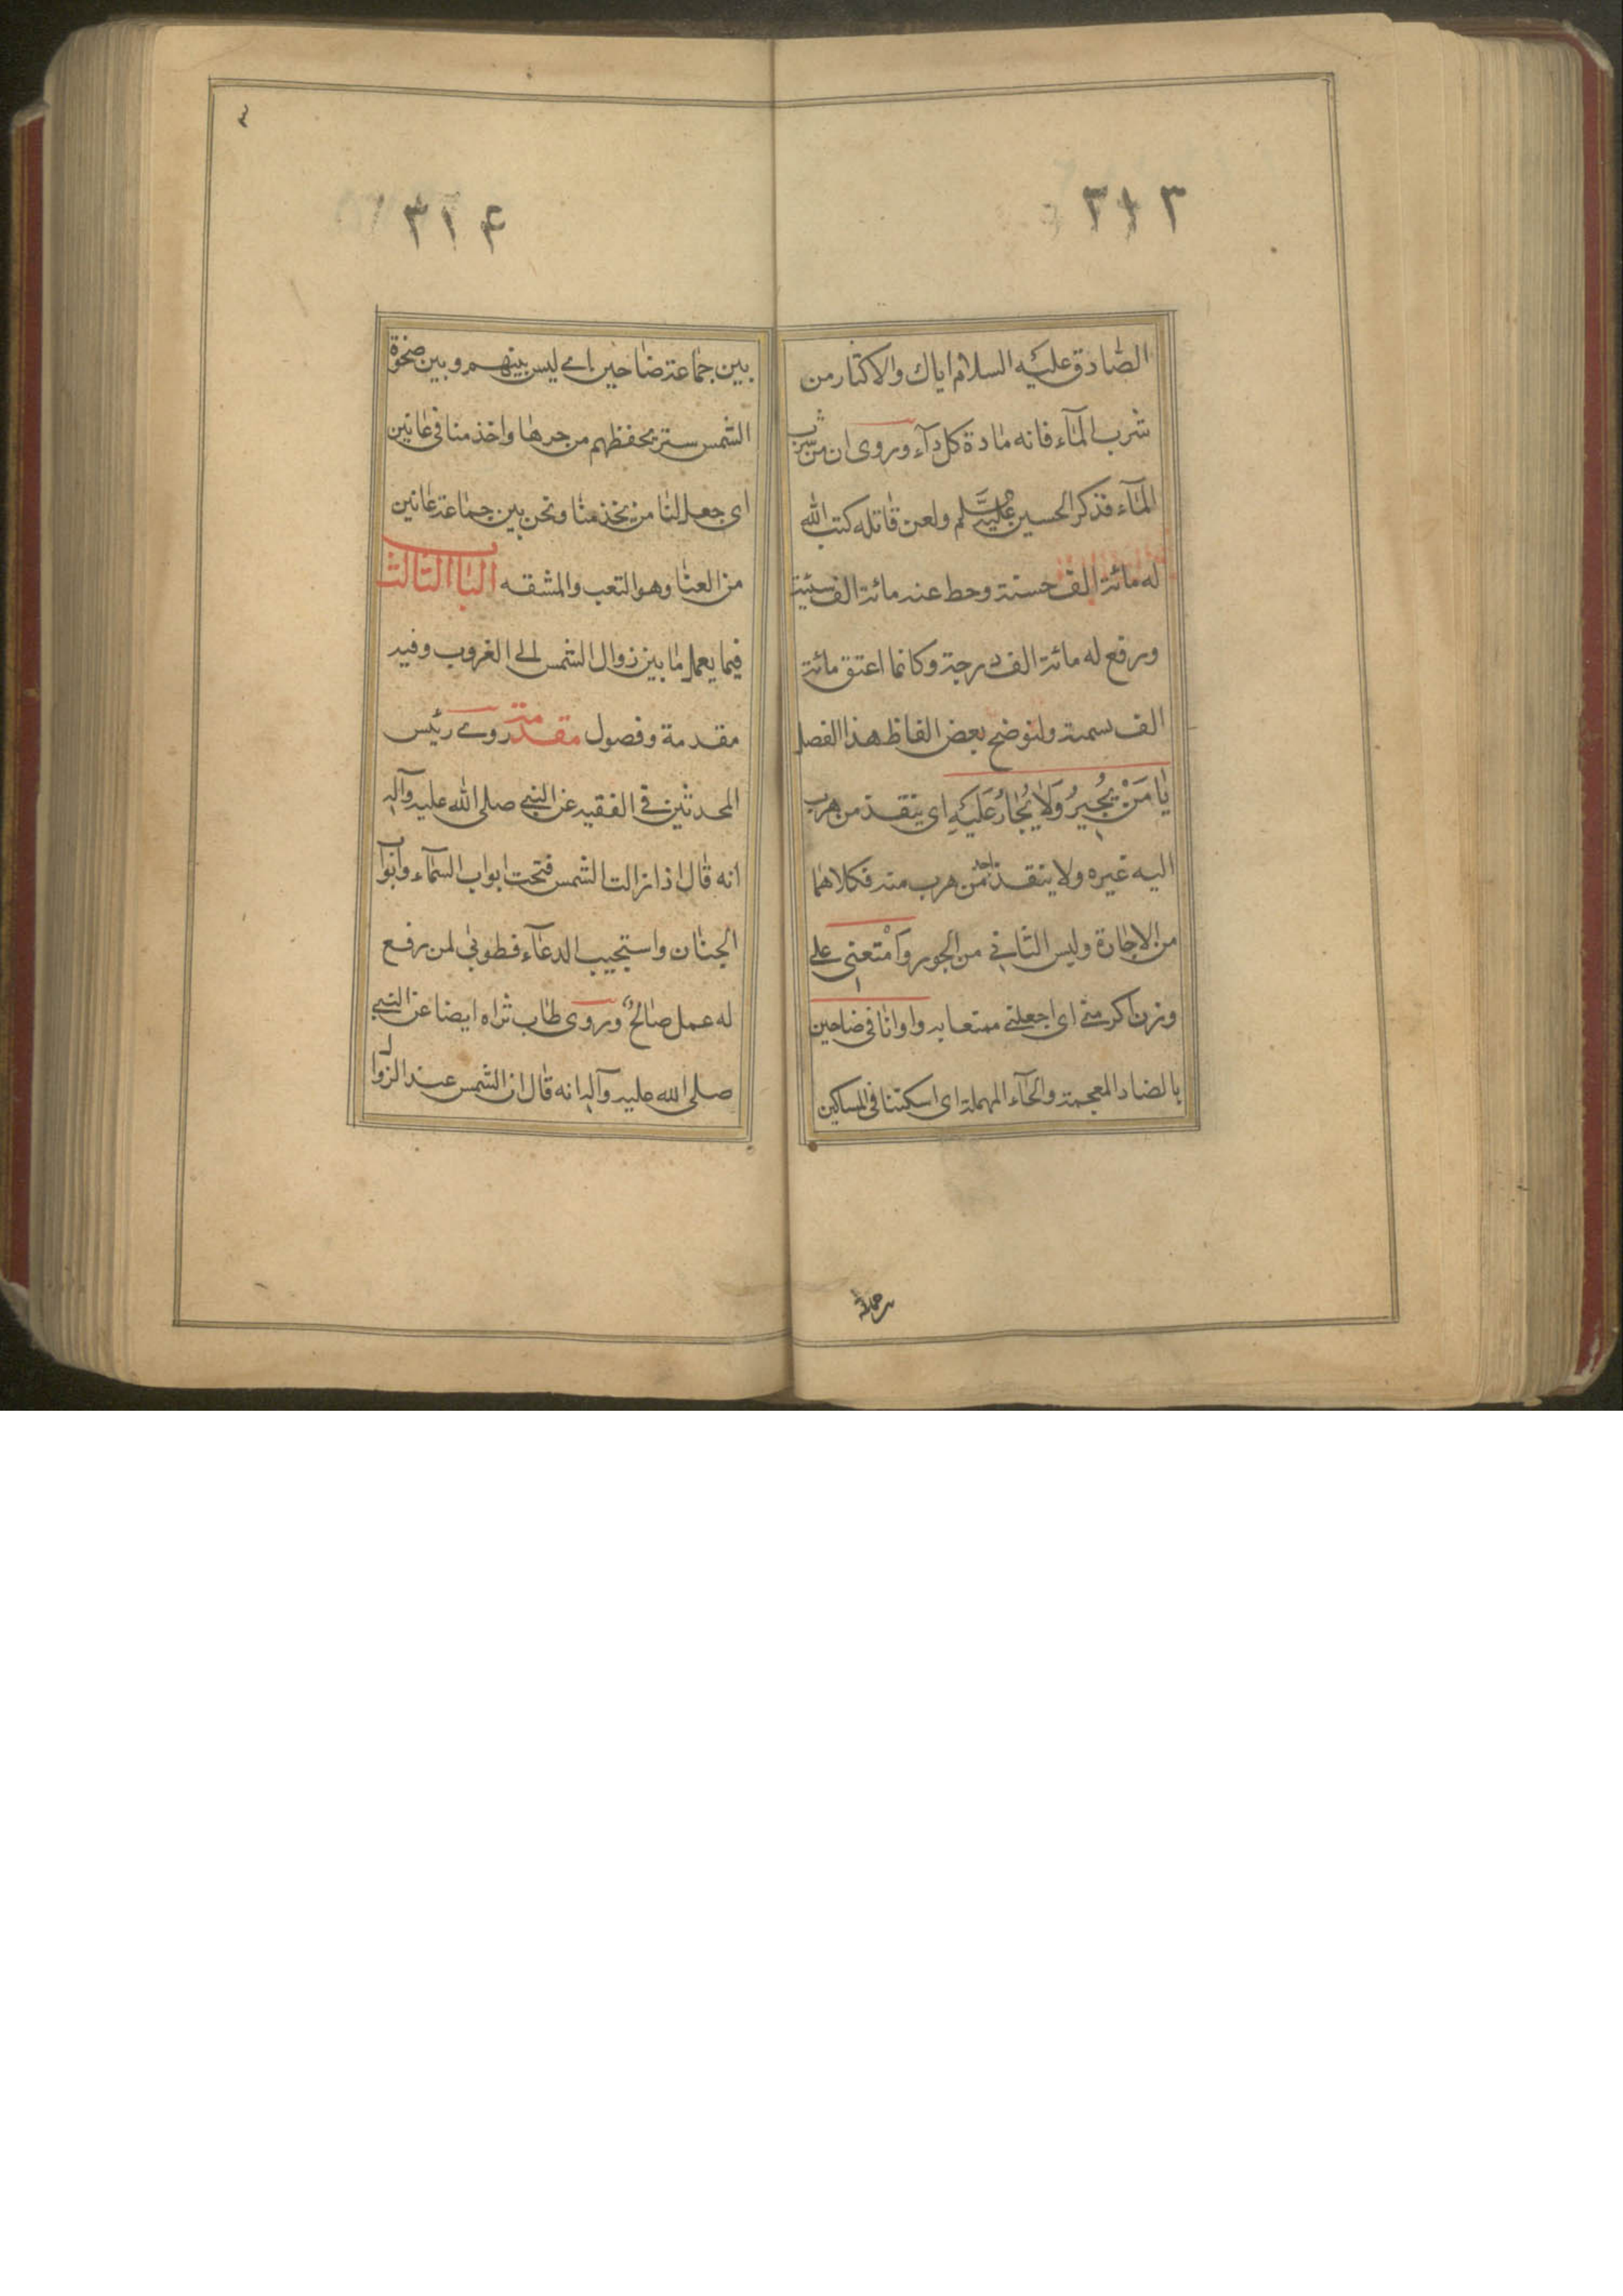 ٣١٣
الصادق عليه السلام اياك والاكثار من
شرب المآء فانه مادة كل دآء وروى ان من شرب
المآء فذكر الحسين عليه السلم ولعن قاتله كتب الله
له مائة الف حسنة وحط عنه مائة الف سيئة
ورفع له مائة الف درجة وكانما اعتق مائة
الف نسمة ولنوضح بعض الفاظ هذا الفصل
يَا مَنْ يُجيرُ وَلَا يُجَارُ عَلَيْهِ اى ينقذ من هرب
اليه غيره ولا ينقذ احد من هرب منه فكلاهما
من الاجارة وليس الثاني من الجور وَاَمْتعنى على
اى اجعلنى
بالضاد المعجمة والحآء المهملة اى اسكنتنا فى المساكين
٣١٤
بين جماعة ضاحين اى ليس بينهم وبين ضحوة
الشمس ستر يحفظهم من حرها واخدمنا فى عانين
اى جعل لنا من يخدمنا ونحن بين جماعة عانين
من العنا وهو التعب والمشقه الباب الثالث
فيما يعمل ما بين زوال الشمس الى الغروب وفيه
مقدمة وفصول مقدمة روى رئيس
المحدثين فى الفقيه عن النبى صلى الله عليه وآله
انه قال اذا زالت الشمس فتحت ابواب السمآء وابواب
الجنان واستجيب الدعآء فطوبى لمن رفع
له عمل صالح وروى طاب ثراه ايضا عن النبى
صلى الله عليه وآله انه قال ان الشمس عند الزوال